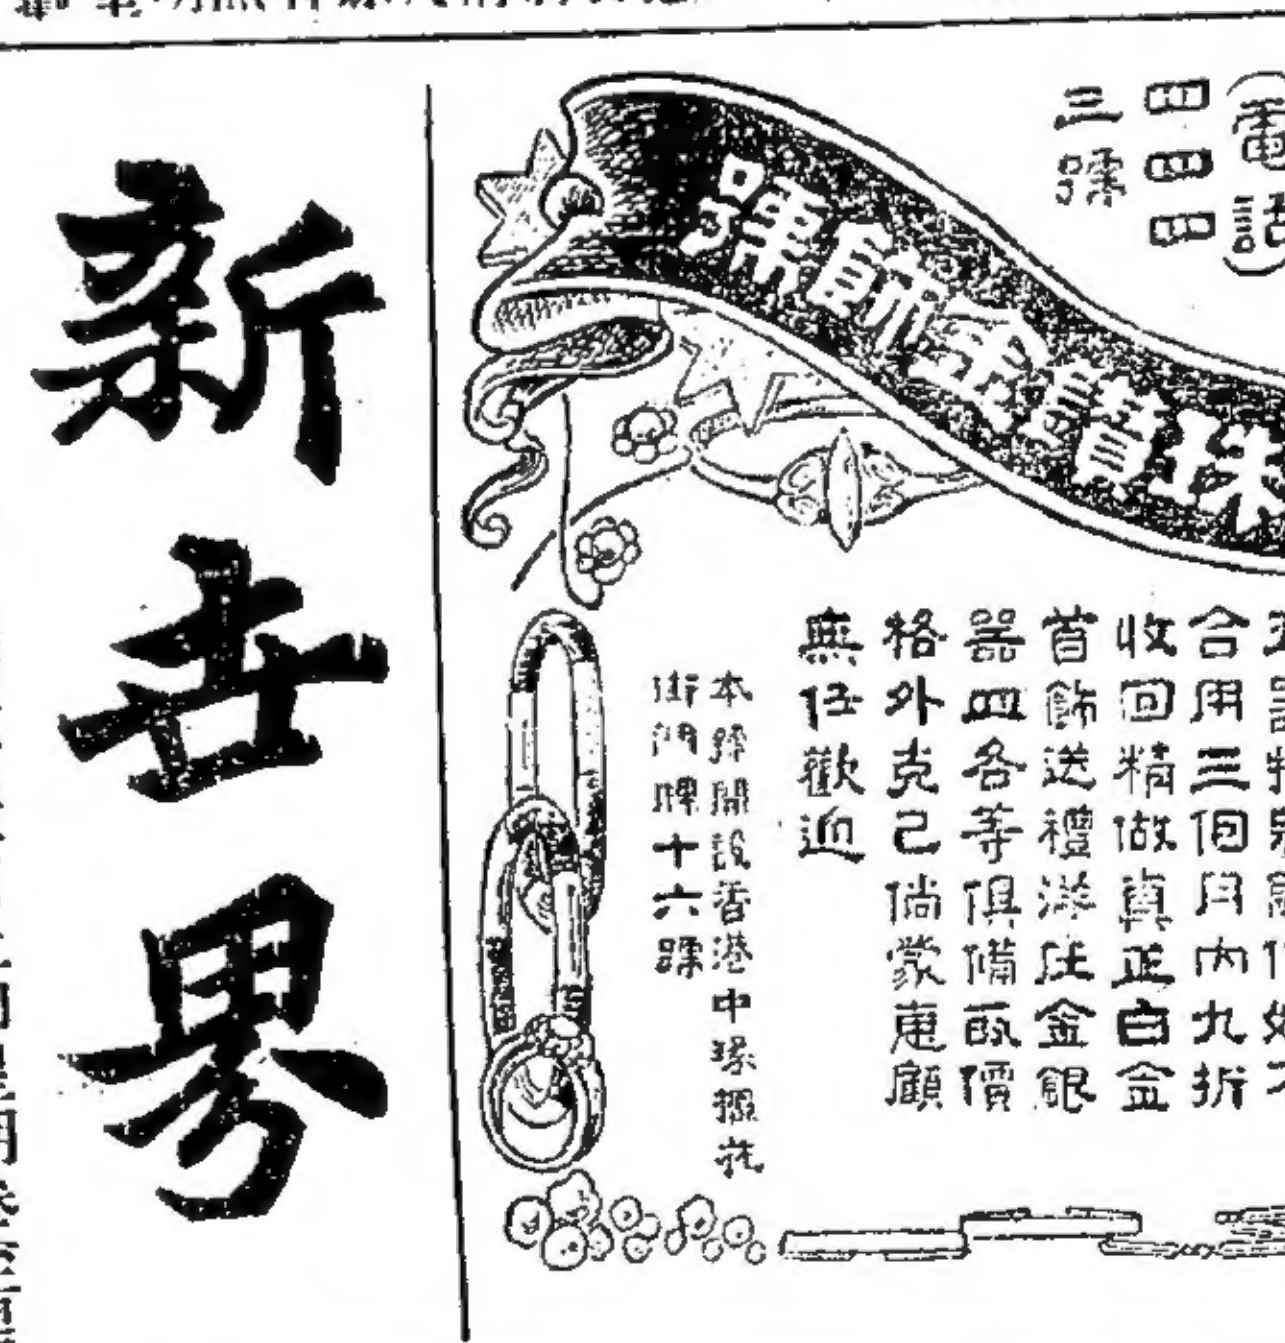 (電話)
四四四
三號
珠寶金飾號
合用三個月內九折
收回精做真正白金
首飾送禮洋庄金銀
器皿各等俱備取價
格外克己倘蒙惠顧
無任歡迎
本號開設香港中環擺花
街門牌十六號
新世界